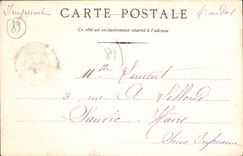 Imprimé
CARTE POSTALE
Ce côté est exclusivement réservé à l'adresse
89
81
Mlle Laurent
3, rue A
Sanvic - Havre
Seine Inférieure